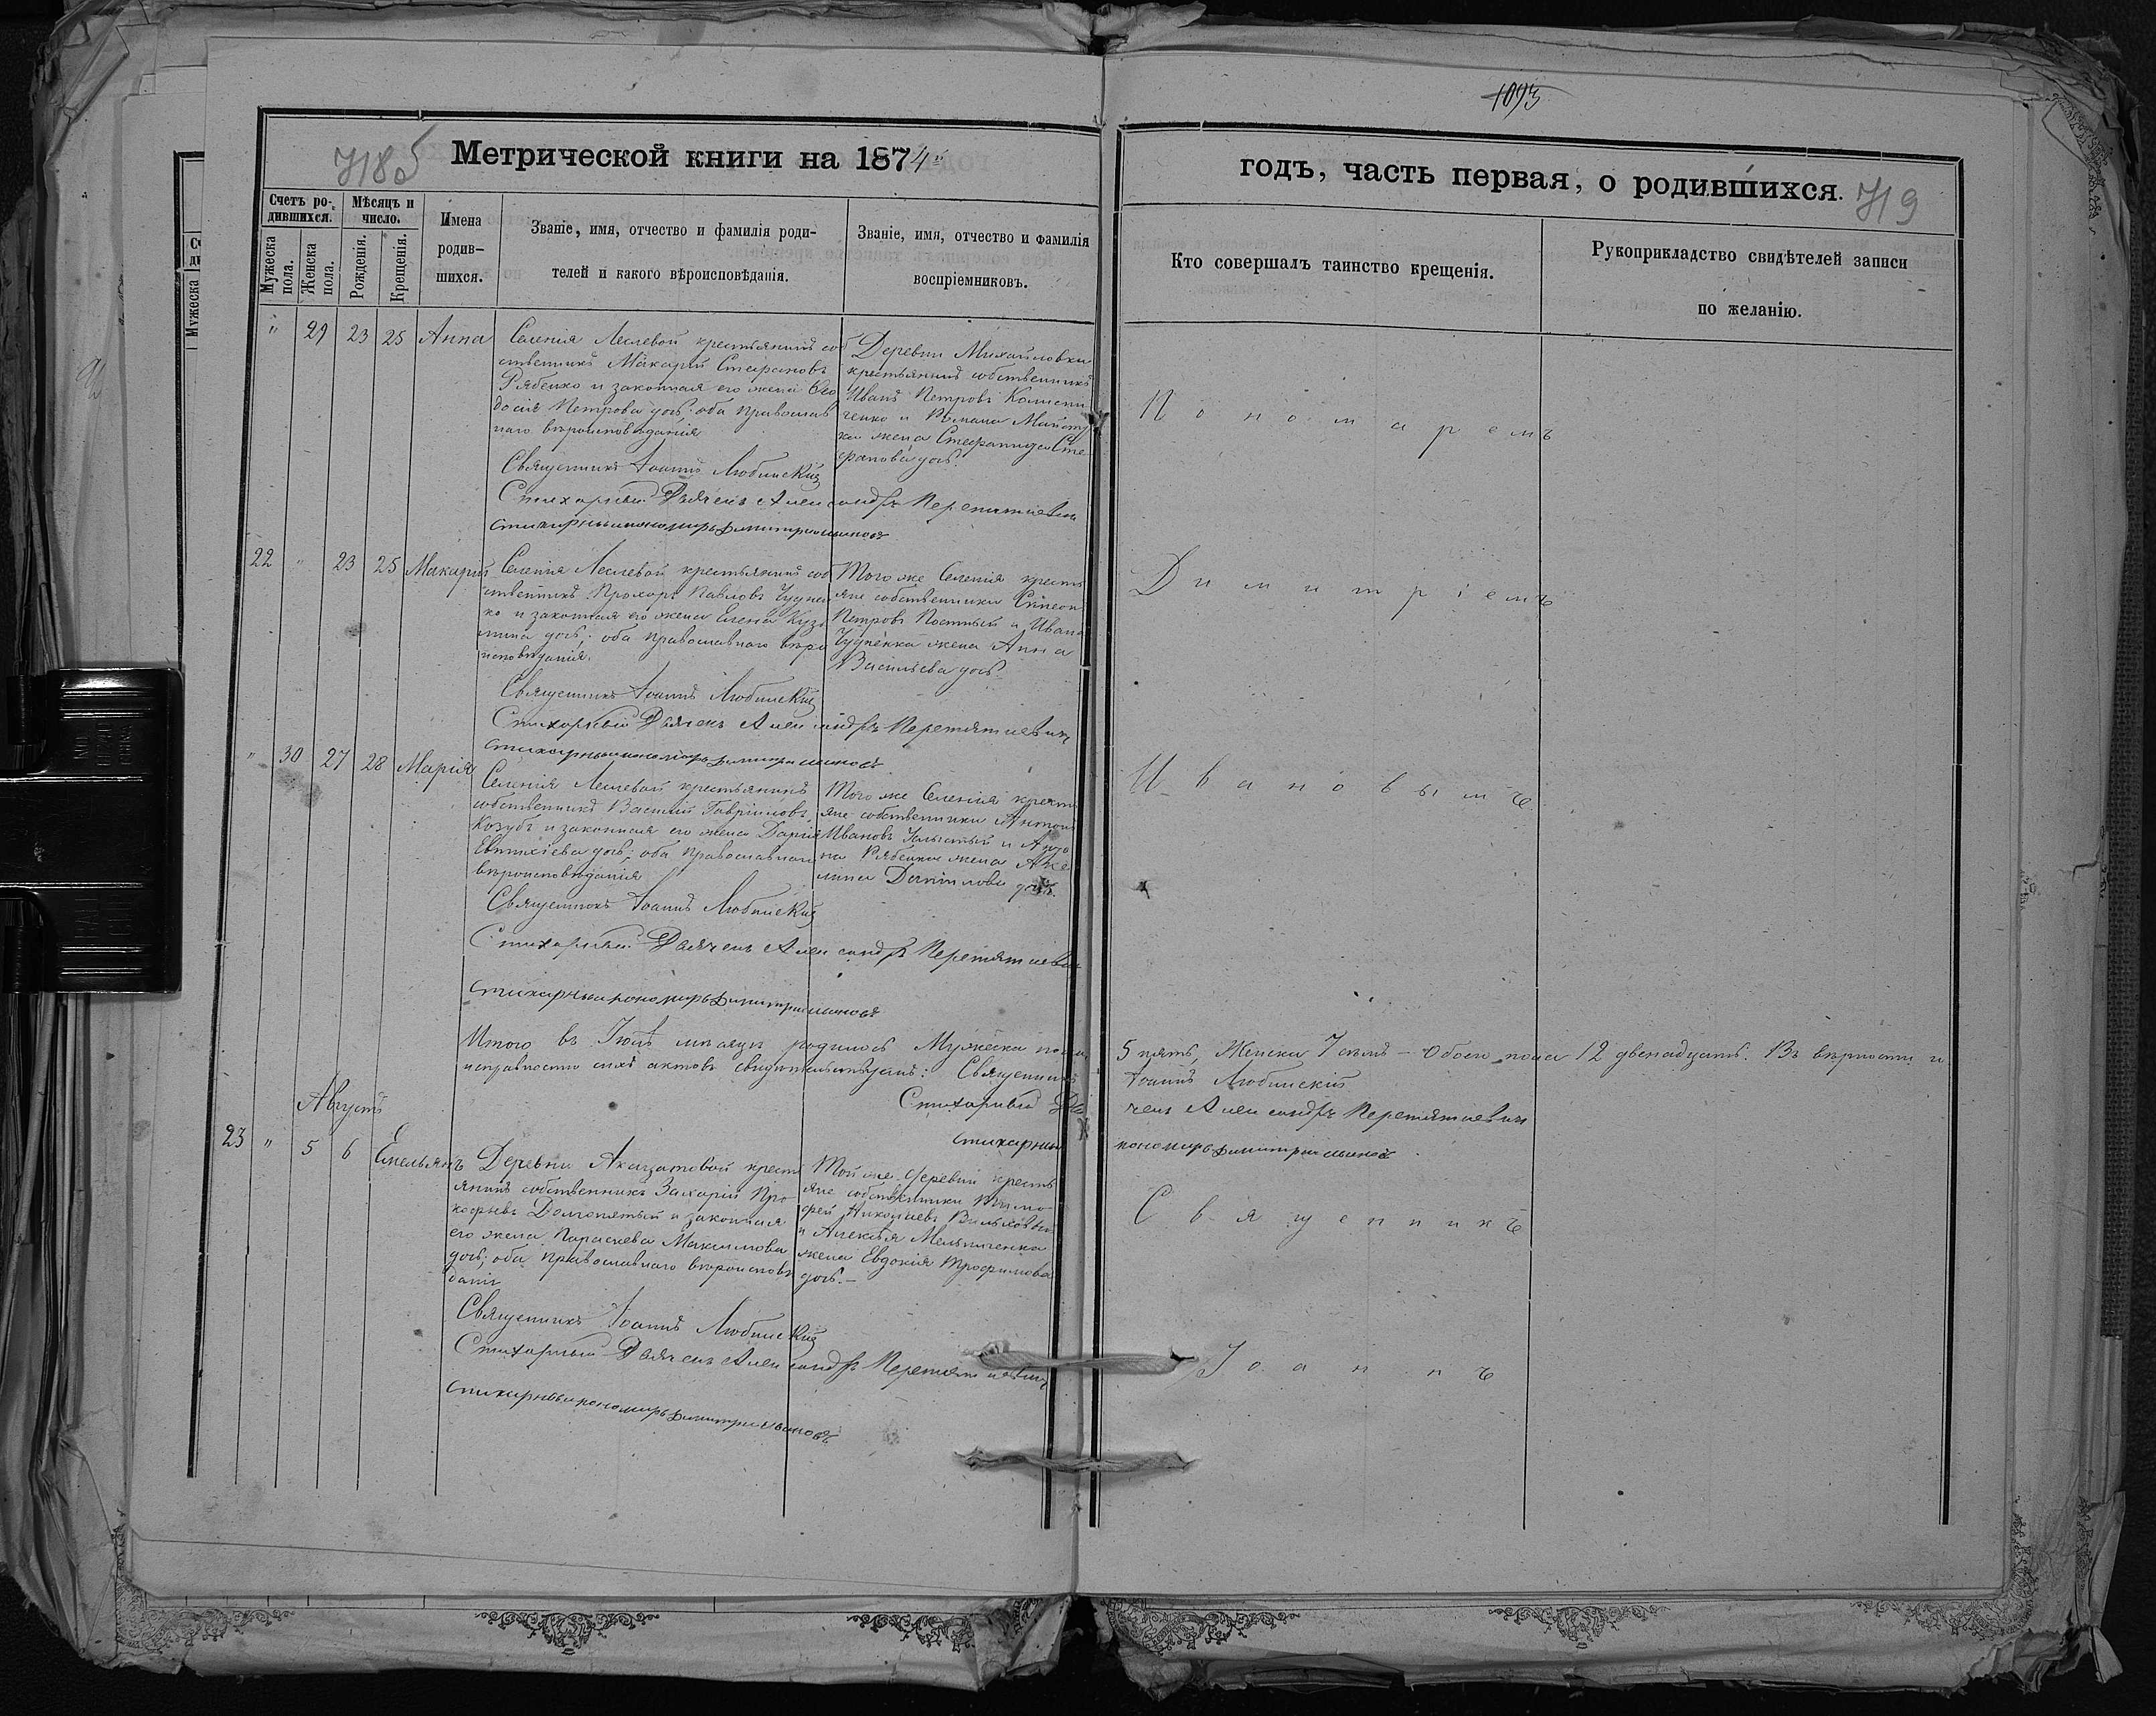 1093
718 об
Метрической книги на 1874й
годъ, часть первая, о родившихся.
719
Счетъ ро-
дившихся.
Мѣсяцъ и
число.
Мужеска
пола.
Женска
пола.
Рожденія.
Крещенія.
Имена
родив-
шихся.
Званіе, имя, отчество и фамилія роди-
телей и какого вѣроисповѣданія.
Званіе, имя, отчество и фамилія
воспріемниковъ.
Кто совершалъ таинство крещенія.
Рукоприкладство свидѣтелей записи
по желанію.
" 29 23 25 Анна
Селенія Леглевой крестьянинъ соб
ственникъ Макарій Стефановъ
Рябенко и законная его жена Ѳео
досія Петрова дочь; оба православ
наго вѣроисповѣданія
Деревни Михайловки
крестьянинъ собственникъ
Иванъ Петровъ
ченко и Романа
ки жена Стефанида Сте
фанова дочь.
Священникъ Іоаннъ Любинскій
Стихарный Дьячекъ Александръ Перетяткевичъ
стихарный пономарь Димитрій Ивановъ
22 " 23 25 Макарій
Селенія Леглевой крестьянинъ соб
ственникъ Прохоръ Павловъ Чуднен
ко и законная его жена Елена Кузь
мина дочь; оба православнаго вѣро
исповѣданія.
Того же Селенія кресть
яне собственники Сѵмеон
Петровъ Постный и Ивана
Чудненка жена Анна
Васильева дочь
Священникъ Іоаннъ Любинскій
Стихарный Дьячекъ Александръ Перетяткевичъ
стихарный пономарь Димитрій Ивановъ
" 30 27 28 Марія
Селенія Леглевой крестьянинъ
собственникъ Василій Гавріиловъ
Козубъ и законная его жена Дарія
Евтихіева дочь; оба православнаго
вѣроисповѣданія
Того же Селенія кресть
яне собственники Антонъ
Ивановъ и Анто
на Рябенка жена Аке
лина Даніилова дочь.
Священникъ Іоаннъ Любинскій
Стихарный Дьячекъ Александръ Перетяткевичъ
стихарный пономарь Димитрій Ивановъ
Пономаремъ
Димитріемъ
Ивановымъ
Итого въ Іюлѣ мѣсяцѣ родилось Мужеска пола 5 пять, Женска 7 семь – Обоего пола 12 двенадцать. Въ вѣрности и
исправности сихъ актовъ свидѣтельствуемъ: Священникъ Іоаннъ Любинскій
Стихарный Дьячекъ Александръ Перетяткевичъ
стихарный пономарь Димитрій Ивановъ
Августъ
23 " 5 6 Емельянъ
Деревни крест
янинъ собственникъ Захарій Про-
кофьевъ Долгопятый и законная
его жена Параскева Максимова
дочь; оба православнаго вѣроисповѣ
данія
Той же деревни кресть
яне собственники Тимо-
фей Николаевъ
и Алексѣя Мельниченка
жена Евдокія Трофимова
дочь.–
Священникъ Іоаннъ Любинскій
Стихарный Дьячекъ Александръ Перетяткевичъ
стихарный пономарь Димитрій Ивановъ
Священникъ
Іоаннъ